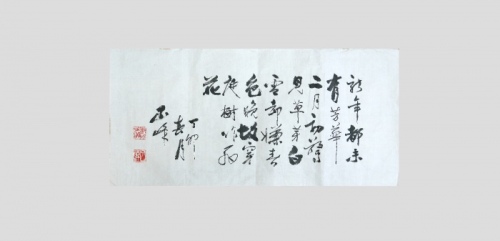 新年都未
有芳華
二月初驚
見草芽白
雪却嫌春
色晚故穿
庭樹作飛
花
丁卯
春月